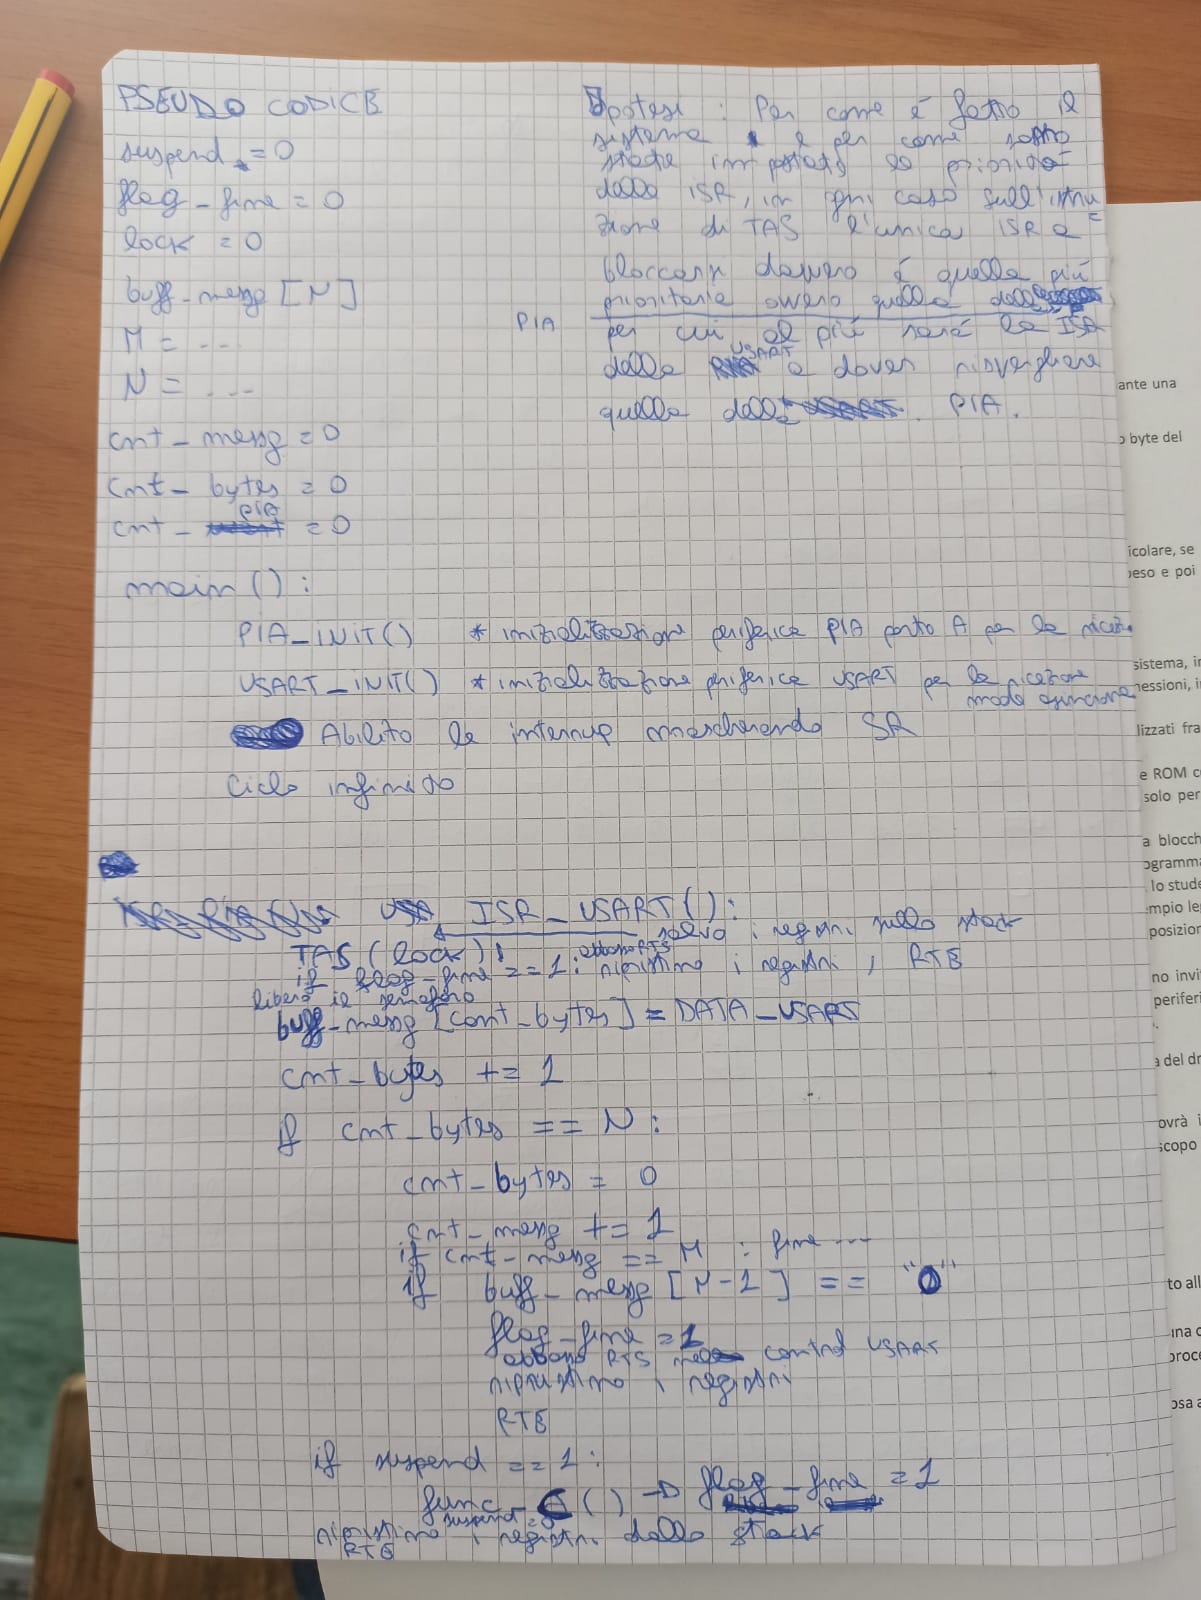 PSEUDO CODICE
suspend = 0
flag_fine = 0
lock = 0
buff_messg [N]
M = ...
N = ...
cnt_messg = 0
cnt_bytes = 0
cnt_PIA = 0
Ipotesi : Per come è fatto il
sistema e per come sono
state impostate le priorità
delle ISR, in ogni caso sull'istru
zione di TAS l'unica ISR a
bloccarsi davvero è quella più
prioritaria ovvero quella della
PIA
per cui al più sarà la ISR
della USART a dover risvegliare
quella della PIA.
main () :
PIA_INIT() * inizializzazione periferica PIA porto A per la ricezio
USART_INIT() * inizializzazione periferica USART per la ricezione
modo asincrono
Abilito le interrup mascherando SR
Ciclo infinito
ISR_USART() :
salvo i registri sullo stack
TAS (lock);
if flag_fine == 1 : abbasso RTS ripristino i registri, RTE
libero il semaforo
buff_messg [cont_bytes] = DATA_USART
cnt_bytes += 1
if cnt_bytes == N :
cnt_bytes = 0
cnt_messg += 1
if cnt_messg == M : fine ...
if buff_messg [N-1] == "0"
flag_fine = 1
abbasso RTS control USART
ripristino i registri
RTE
if suspend == 1 :
func_C () → flag_fine = 1
suspend = 0
ripristino i registri dallo stack
RTE
ante una
o byte del
icolare, se
peso e poi
sistema, in
nessioni, i
lizzati fra
e ROM c
solo per
a blocch
ogramma
lo stude
mpio le
posizior
no invi
periferi
a del dr
ovrà i
scopo
to all
una c
proce
osa a